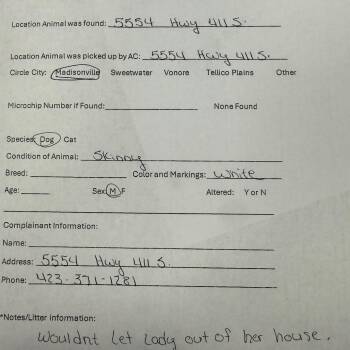 Location Animal was found: 5554 Hwy 411 S.
Location Animal was picked up by AC: 5554 Hwy 411 S.
Circle City: Madisonville Sweetwater Vonore Tellico Plains Other
Microchip Number if Found: None Found
Species: Dog Cat
Condition of Animal: Skinny
Breed: Color and Markings: White
Age: Sex: M F Altered: Y or N
Complainant Information:
Name:
Address: 5554 Hwy 411 S.
Phone: 423-371-1281
*Notes/Litter information:
Wouldnt let lady out of her house.